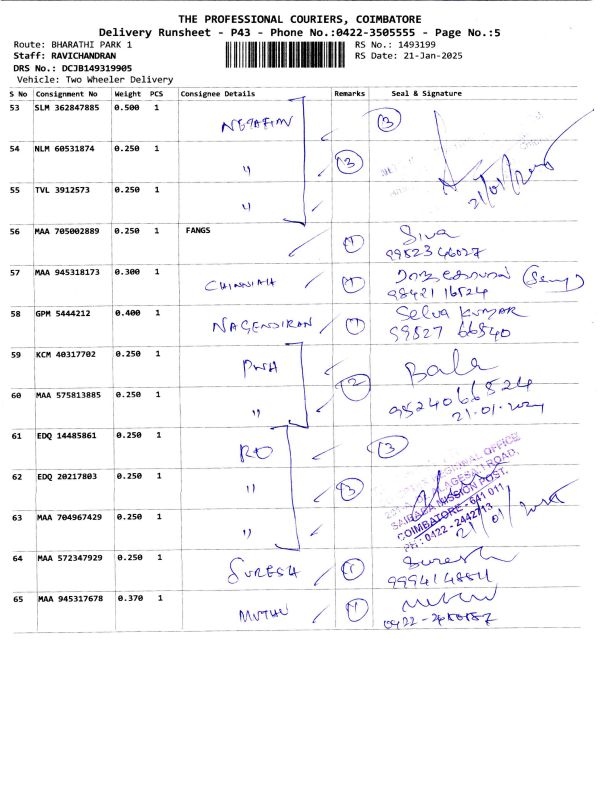 THE PROFESSIONAL COURIERS, COIMBATORE
Delivery Runsheet - P43 - Phone No.:0422-3505555 - Page No.:5
Route: BHARATHI PARK 1
RS No.: 1493199
Staff: RAVICHANDRAN
RS Date: 21-Jan-2025
DRS No.: DCJB149319905
Vehicle: Two Wheeler Delivery
S No Consignment No Weight PCS Consignee Details Remarks Seal & Signature
53 SLM 362847885 0.500 1 3
54 NLM 60531874 0.250 1 " 3
55 TVL 3912573 0.250 1 "
56 MAA 705002889 0.250 1 FANGS 1 Siva
99523 46027
57 MAA 945318173 0.300 1 CHINNIAH 1
98421 16524
58 GPM 5444212 0.400 1 NAGENDIRAN 1 Selva KUMAR
99527 66540
59 KCM 40317702 0.250 1 Bala
60 MAA 575813885 0.250 1 " 2 95240 66524
21.01.2025
61 EDQ 14485861 0.250 1 RO 3
62 EDQ 20217803 0.250 1 " 3
REGIONAL OFFICE
ALAGESAN ROAD,
SAIBABA MISSION POST,
COIMBATORE - 641 011
PH : 0422 - 2442713
63 MAA 704967429 0.250 1 "
64 MAA 572347929 0.250 1 SURESH 1 Suresh
65 MAA 945317678 0.370 1 MUTHU 1